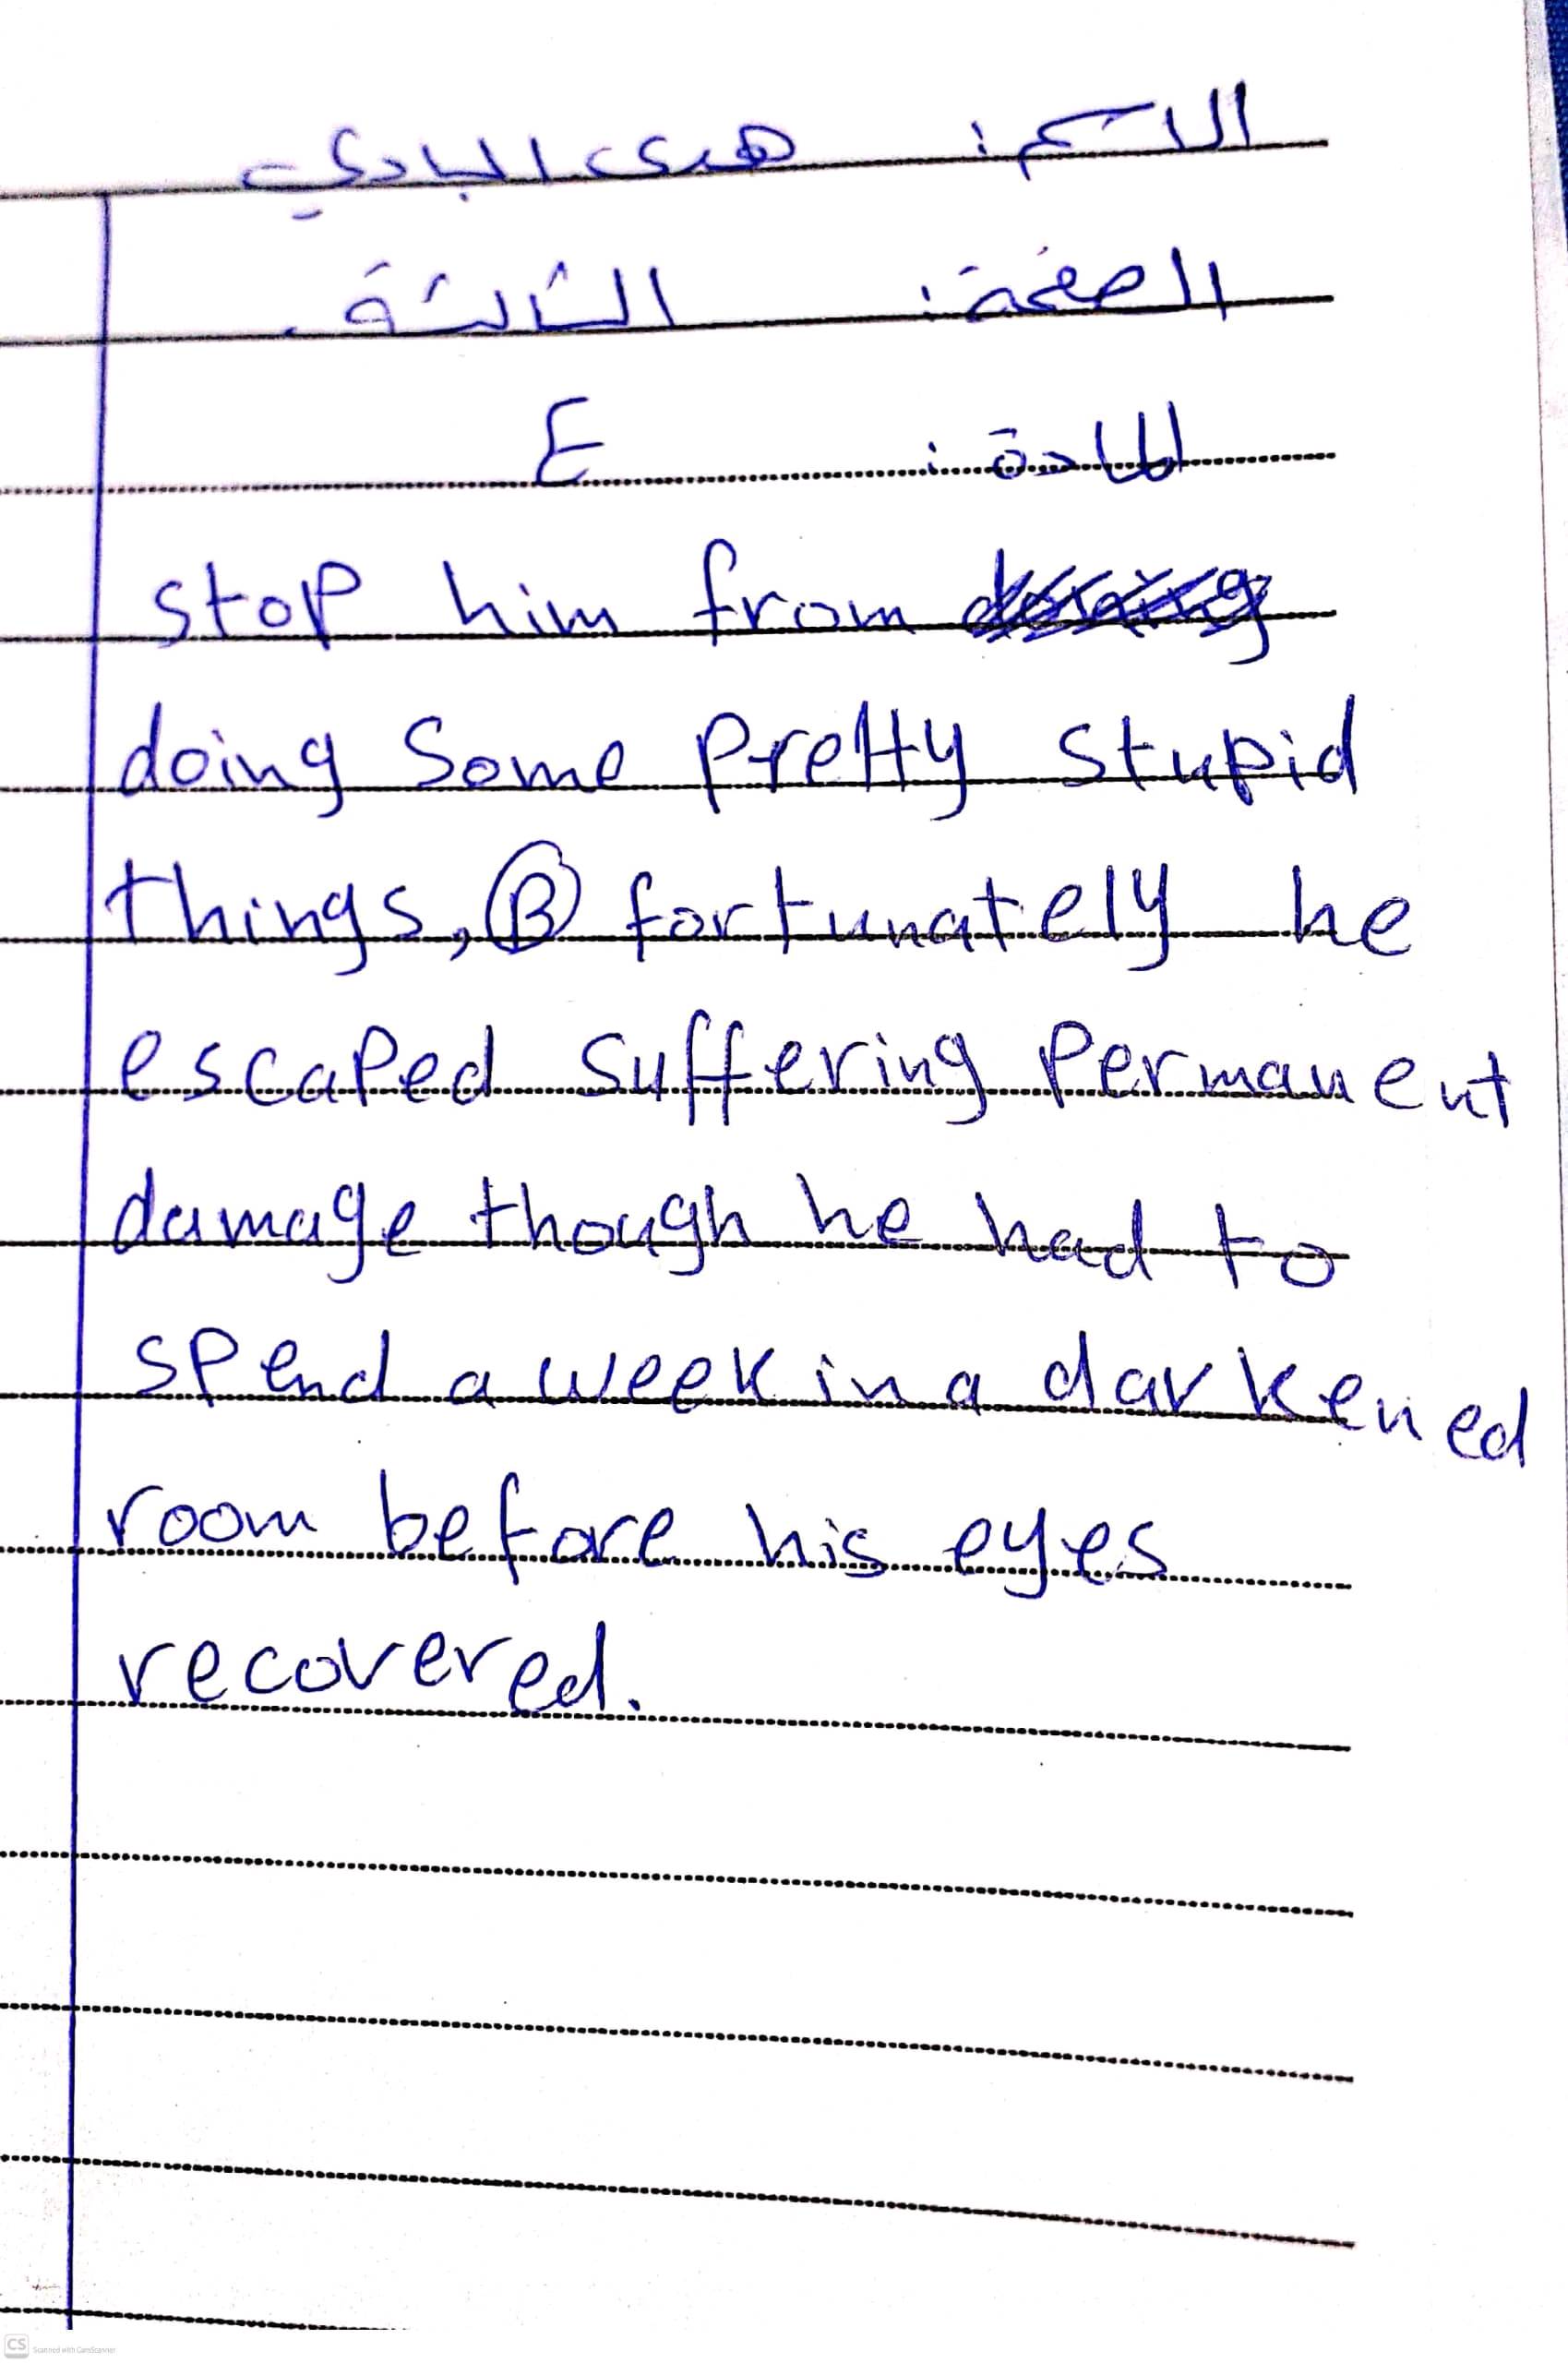 الاسم: هدى البادي
الصفحة: الثالثة
المادة: E
stop him from
doing some pretty stupid
things, B fortunately he
escaped suffering permanent
damage though he had to
spend a week in a darkened
room before his eyes
recovered.
CS Scanned with CamScanner